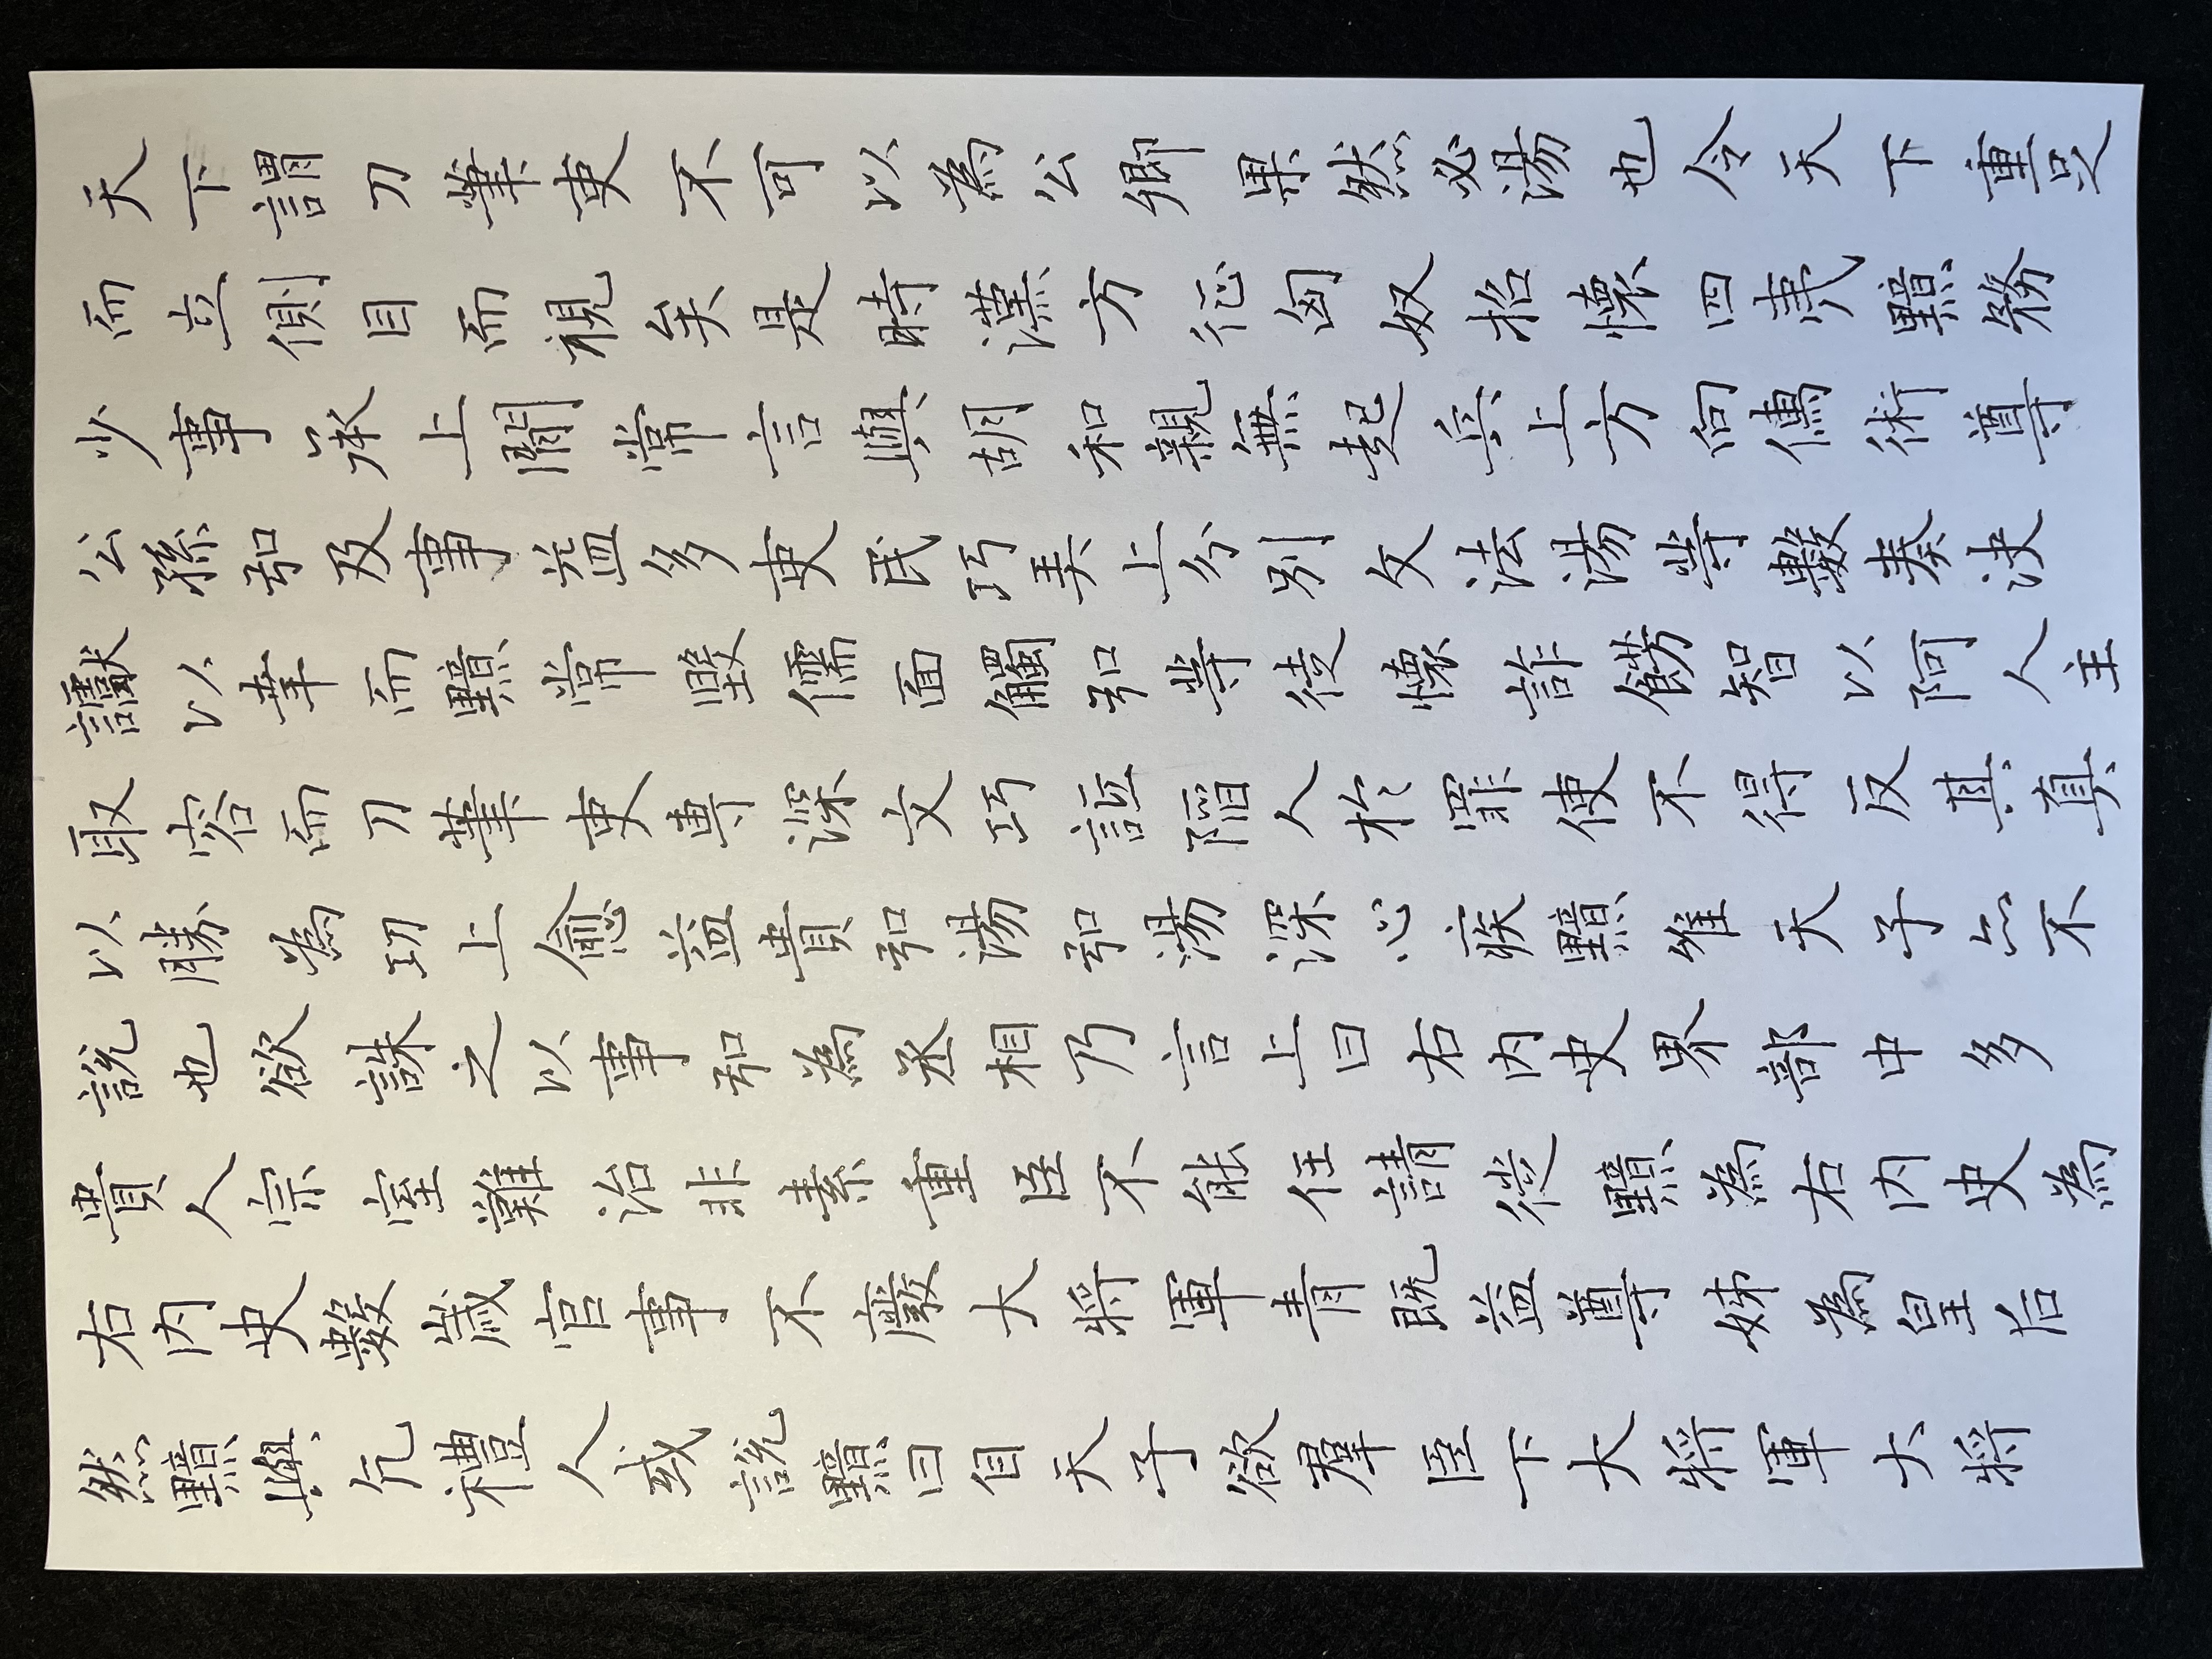 天下謂刀筆吏不可以為公卿果然必湯也令天下重足
而立側目而視矣是時漢方征匈奴招懷四夷黯務
少事承上閒常言與胡和親無起兵上方向儒術尊
公孫弘及事益多吏民巧弄上分別文法湯等數奏決
讞以幸而黯常毀儒面觸弘等徒懷詐飾智以阿人主
取容而刀筆吏專深文巧詆陷人於罪使不得反其真
以勝為功上愈益貴弘湯弘湯深心疾黯唯天子亦不
說也欲誅之以事弘為丞相乃言上曰右內史界部中多
貴人宗室難治非素重臣不能任請徙黯為右內史為
右內史數歲官事不廢大將軍青既益尊姊為皇后
然黯與亢禮人或說黯曰自天子欲羣臣下大將軍大將